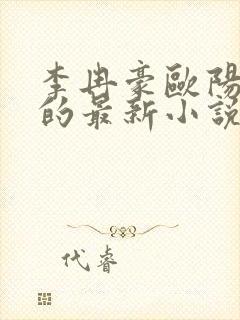 李冉豪歐陽
的最新小說
代睿